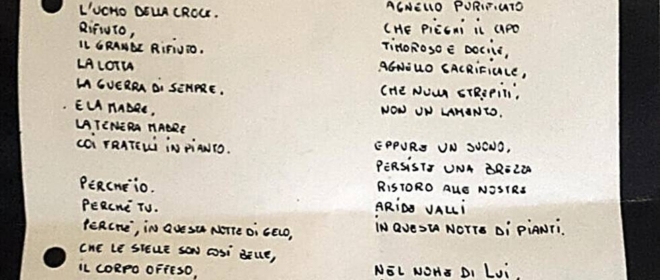 L'UOMO DELLA CROCE.
RIFIUTO,
IL GRANDE RIFIUTO.
LA LOTTA
LA GUERRA DI SEMPRE.
E LA MADRE,
LA TENERA MADRE
COI FRATELLI IN PIANTO.
PERCHÈ IO.
PERCHÈ TU.
PERCHÈ, IN QUESTA NOTTE DI GELO,
CHE LE STELLE SON COSÌ BELLE,
IL CORPO OFFESO,
AGNELLO PURIFICATO
CHE PIEGHI IL CAPO
TIMOROSO E DOCILE,
AGNELLO SACRIFICALE,
CHE NULLA STREPITI,
NON UN LAMENTO.
EPPURE UN SUONO,
PERSISTE UNA BREZZA
RISTORO ALLE NOSTRE
ARIDE VALLI
IN QUESTA NOTTE DI PIANTI.
NEL NOME DI LUI,